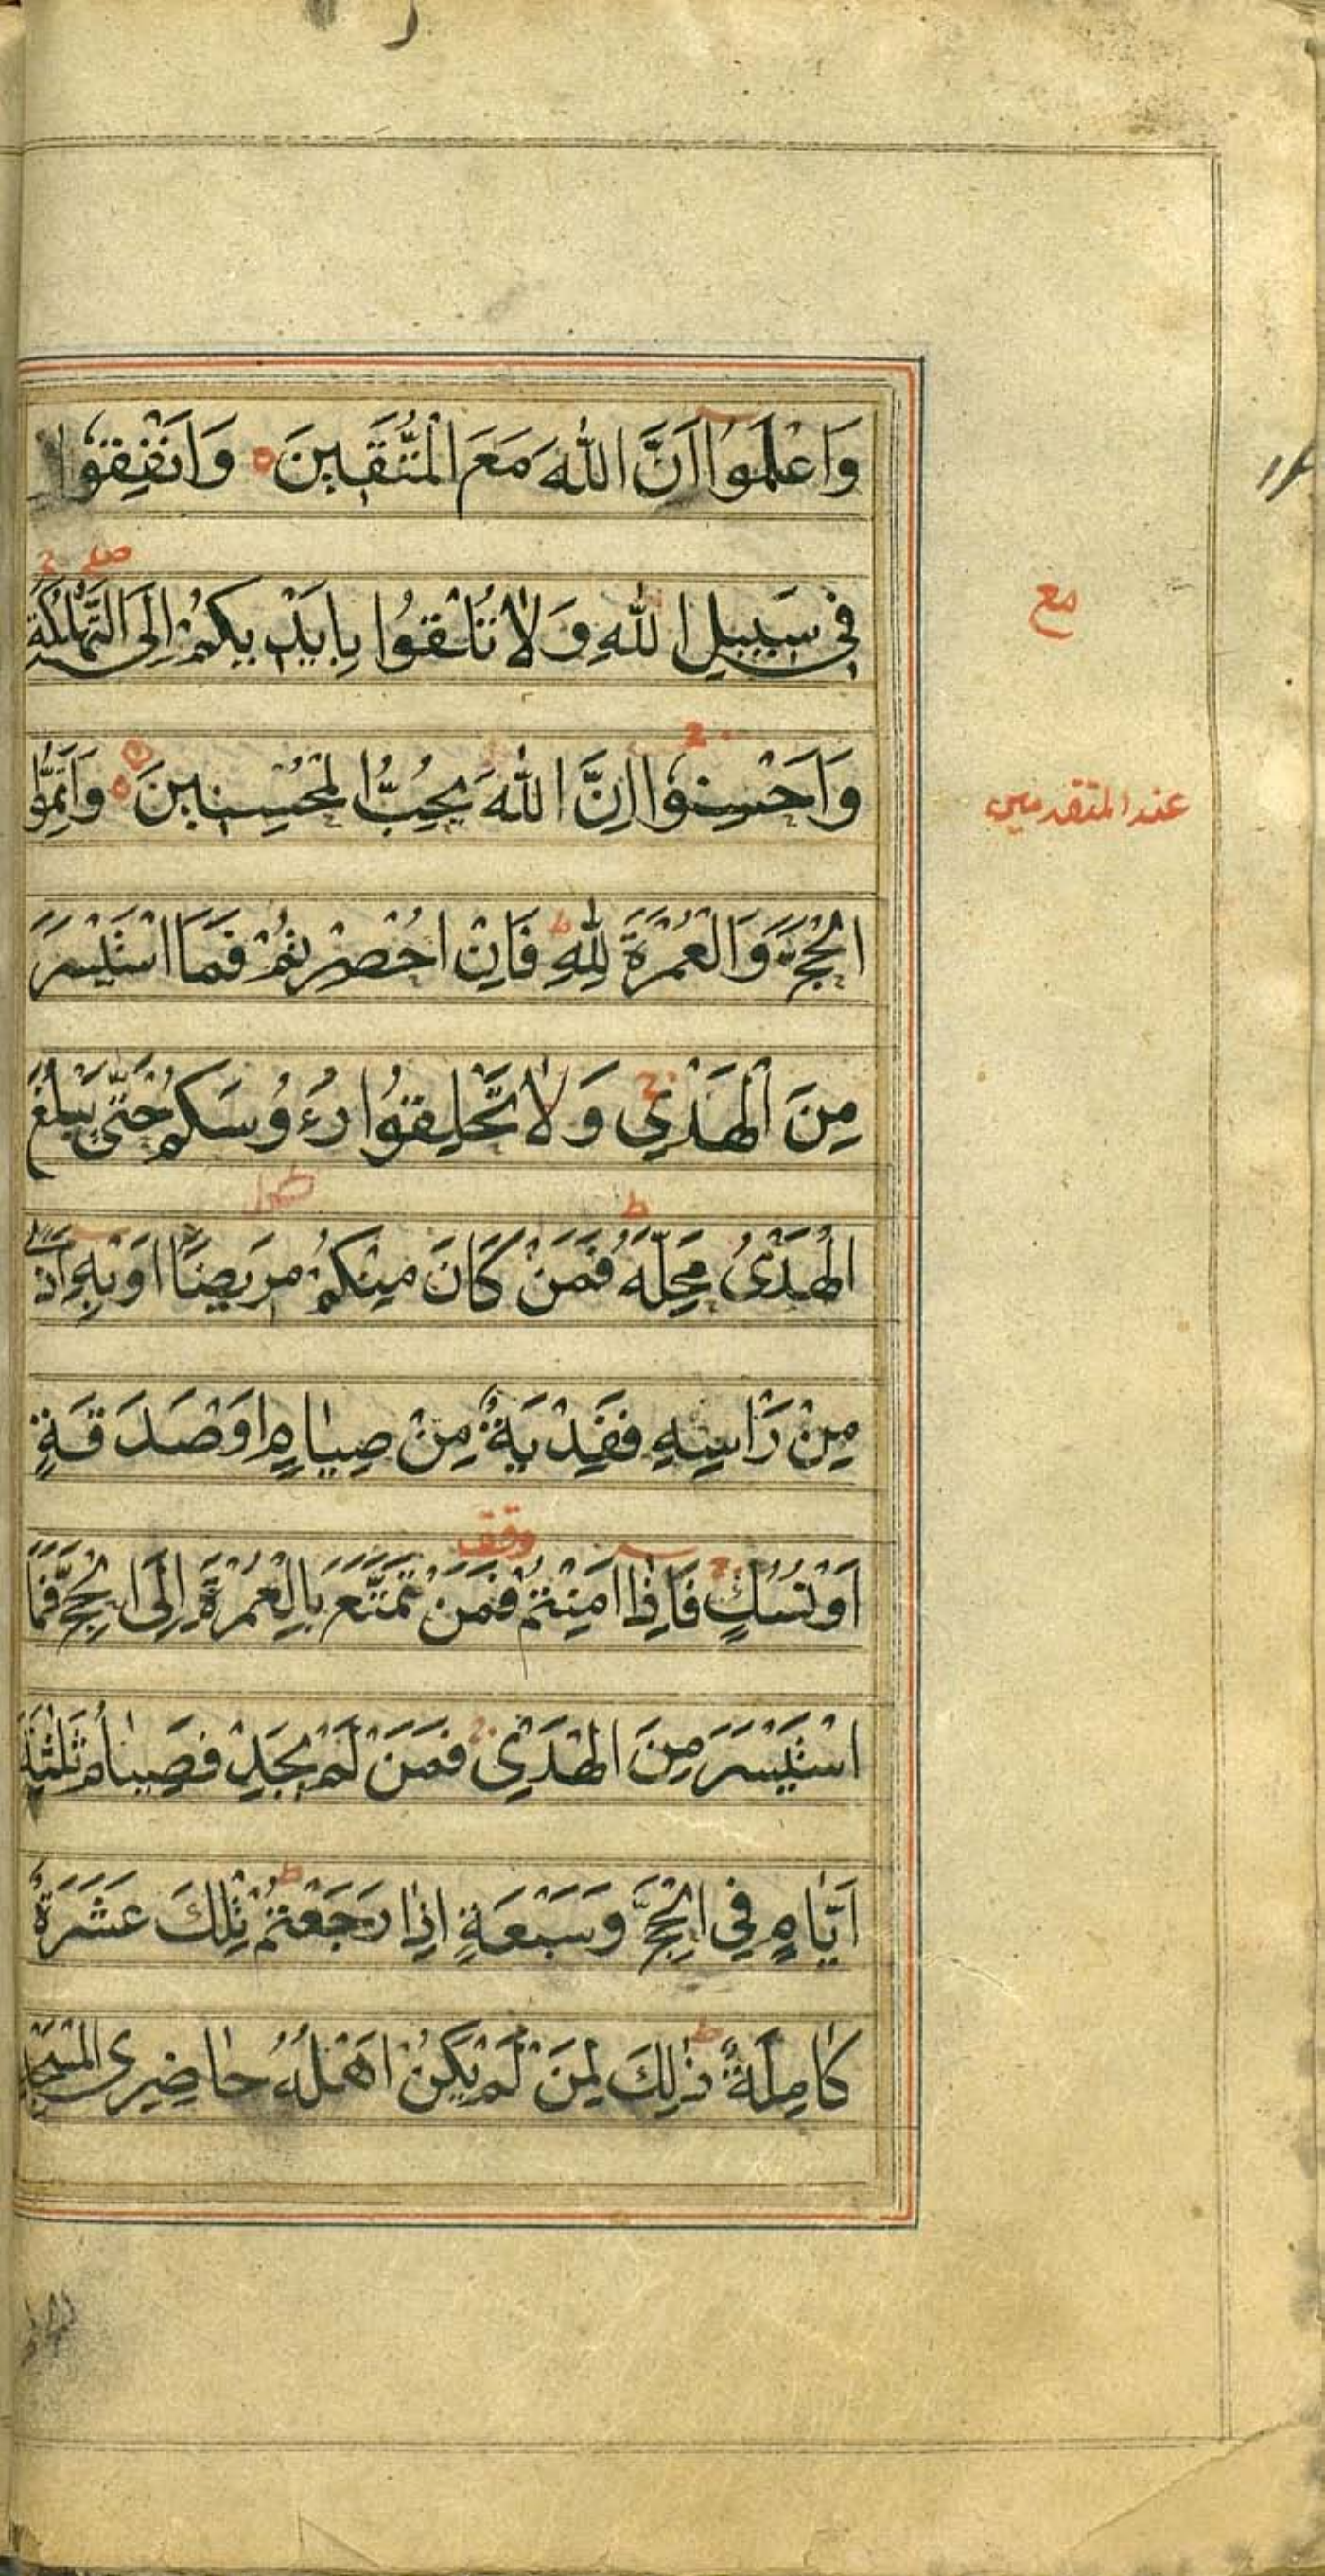 وَاعْلَمُوا اَنَّ اللّٰهَ مَعَ الْمُتَّقِينَ ٥ وَاَنْفِقُوا
صلے ج
فِي سَبِيلِ اللّٰهِ وَلَا تُلْقُوا بِاَيْدِيكُمْ اِلَى التَّهْلُكَةِ
مع
وَاَحْسِنُوا ج اِنَّ اللّٰهَ يُحِبُّ الْمُحْسِنِينَ ٥ وَاَتِمُّوا
عند المتقدمين
الْحَجَّ وَالْعُمْرَةَ لِلّٰهِ ط فَاِنْ اُحْصِرْتُمْ فَمَا اسْتَيْسَرَ
مِنَ الْهَدْيِ ج وَلَا تَحْلِقُوا رُءُوسَكُمْ حَتّٰى يَبْلُغَ
الْهَدْىُ مَحِلَّهُ ط فَمَنْ كَانَ مِنْكُمْ مَرِيضًا اَوْ بِهِ اَذًى
مِنْ رَاْسِهِ فَفِدْيَةٌ مِنْ صِيَامٍ اَوْ صَدَقَةٍ
اَوْ نُسُكٍ ج فَاِذَا اَمِنْتُمْ وقف فَمَنْ تَمَتَّعَ بِالْعُمْرَةِ اِلَى الْحَجِّ فَمَا
اسْتَيْسَرَ مِنَ الْهَدْىِ ج فَمَنْ لَمْ يَجِدْ فَصِيَامُ ثَلٰثَةِ
اَيَّامٍ فِي الْحَجِّ وَسَبْعَةٍ اِذَا رَجَعْتُمْ ط تِلْكَ عَشَرَةٌ
كَامِلَةٌ ط ذٰلِكَ لِمَنْ لَمْ يَكُنْ اَهْلُهُ حَاضِرِى الْمَسْجِدِ